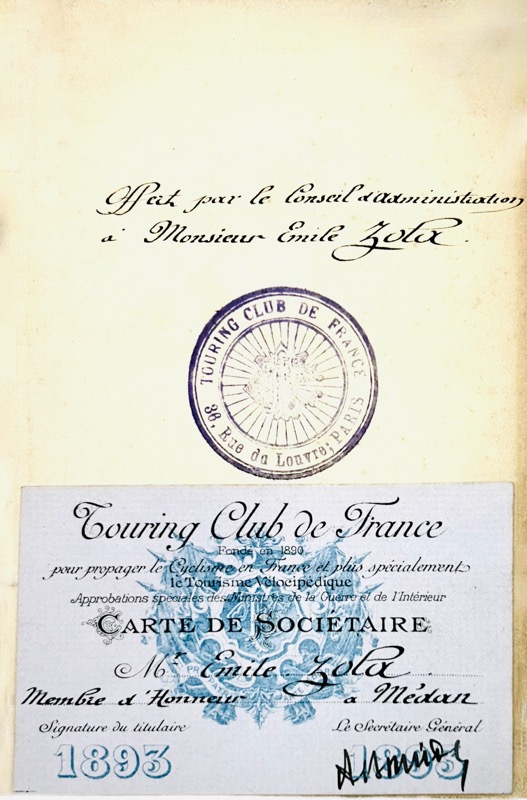 Offert par le Conseil d'Administration
à Monsieur Emile Zola.
TOURING CLUB DE FRANCE
36, Rue du Louvre, PARIS
Touring Club de France
Fondé en 1890
pour propager le Cyclisme en France et plus spécialement
le Tourisme Vélocipédique
Approbations spéciales des Ministres de la Guerre et de l'Intérieur
CARTE DE SOCIÉTAIRE
Mr Emile Zola
Membre d'Honneur à Médan
Signature du titulaire Le Secrétaire Général
1893 1893